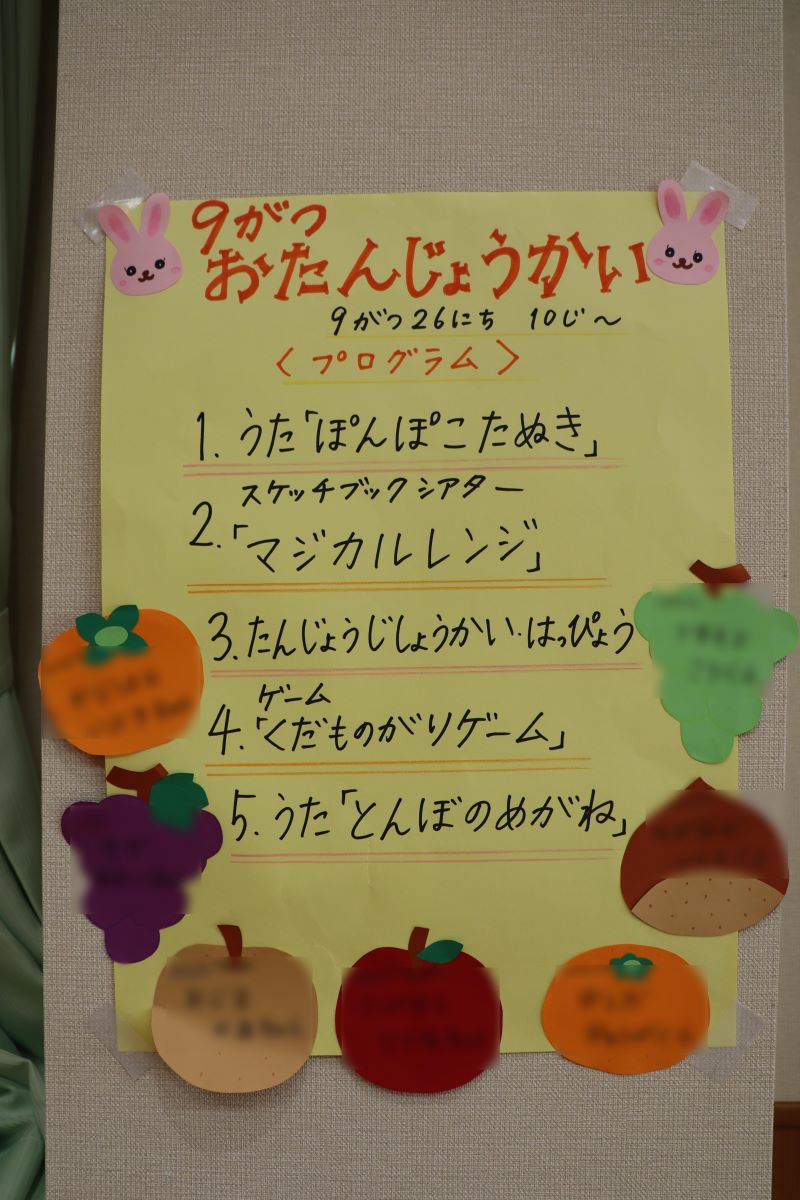 9がつ
おたんじょうかい
9がつ26にち 10じ〜
〈プログラム〉
1. うた「ぽんぽこたぬき」
スケッチブックシアター
2.「マジカルレンジ」
3.たんじょうじしょうかい・はっぴょう
ゲーム
4.「くだものがりゲーム」
5.うた「とんぼのめがね」